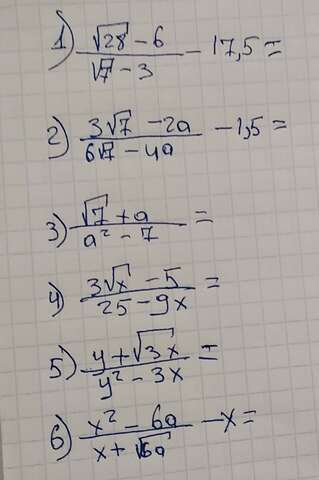 1) (√28 - 6)/(√7 - 3) - 17,5 =
2) (3√7 - 2a)/(6√7 - 4a) - 1,5 =
3) (√7 + a)/(a² - 7) =
4) (3√x - 5)/(25 - 9x) =
5) (y + √3x)/(y² - 3x) =
6) (x² - 6a)/(x + √6a) - x =